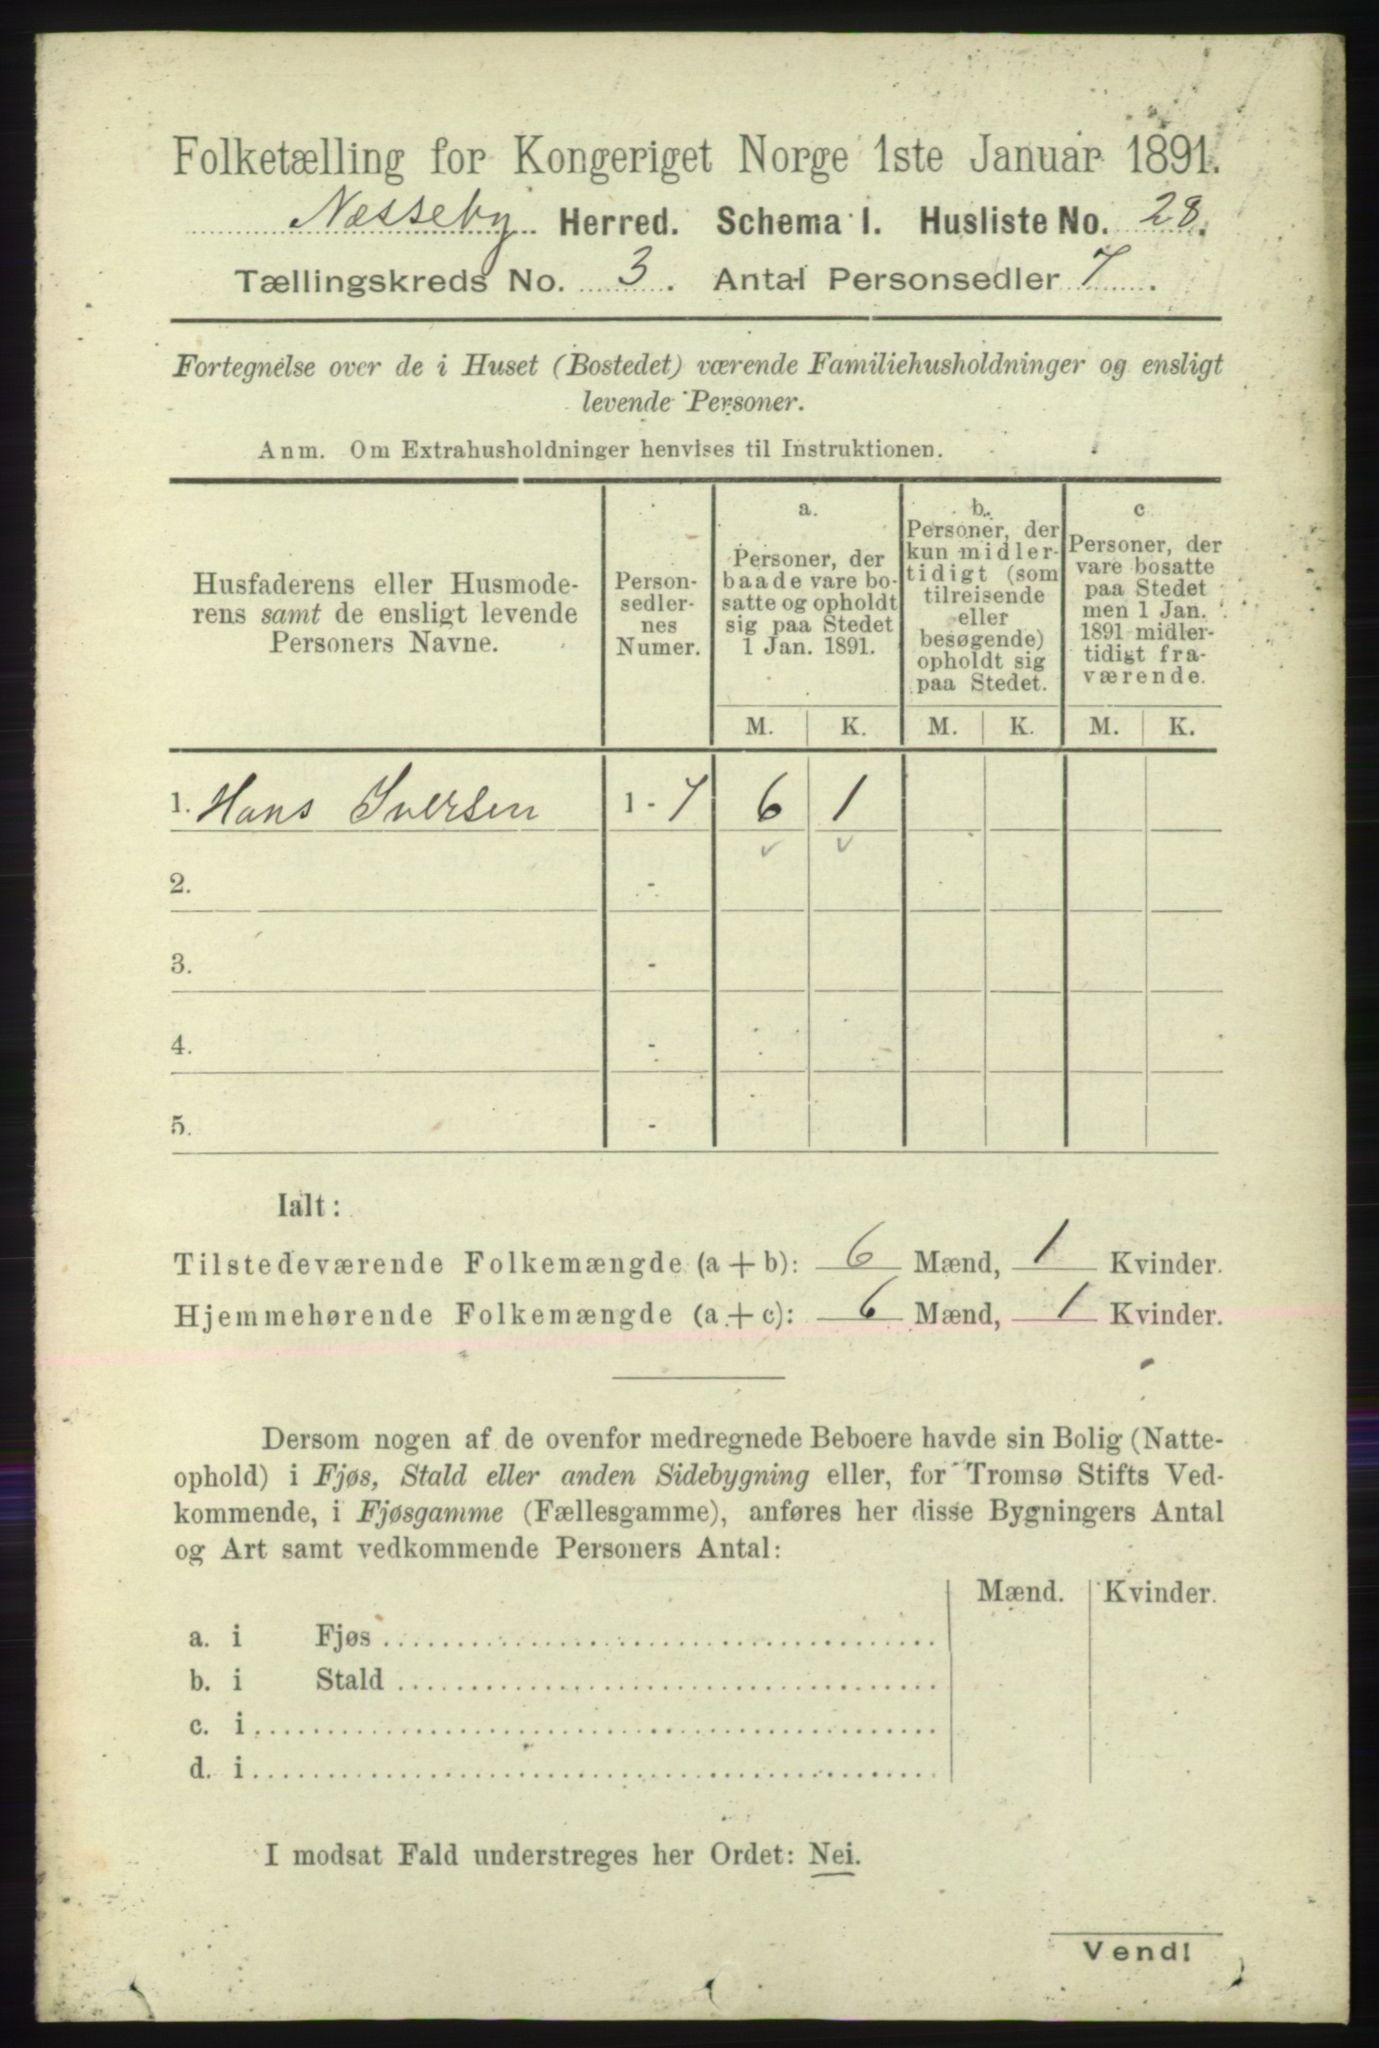 Folketælling for Kongeriget Norge 1ste Januar 1891.
Næsseby Herred. Schema I. Husliste No. 28.
Tællingskreds No. 3. Antal Personsedler 7.
Fortegnelse over de i Huset (Bostedet) værende Familiehusholdninger og ensligt
levende Personer.
Anm. Om Extrahusholdninger henvises til Instruktionen.
Husfaderens eller Husmode-
rens samt de ensligt levende
Personers Navne.
Person-
sedler-
nes
Numer.
a.
Personer, der
baade vare bo-
satte og opholdt
sig paa Stedet
1 Jan. 1891.
b.
Personer, der
kun midler-
tidigt (som
tilreisende
eller
besøgende)
opholdt sig
paa Stedet.
c
Personer, der
vare bosatte
paa Stedet
men 1 Jan.
1891 midler-
tidigt fra-
værende.
M. K. M. K. M. K.
1. Hans Iversen 1 - 7 6 1
2. -
3. -
4. -
5. -
Ialt:
Tilstedeværende Folkemængde (a + b): 6 Mænd, 1 Kvinder.
Hjemmehørende Folkemængde (a + c): 6 Mænd, 1 Kvinder.
Dersom nogen af de ovenfor medregnede Beboere havde sin Bolig (Natte-
ophold) i Fjøs, Stald eller anden Sidebygning eller, for Tromsø Stifts Ved-
kommende, i Fjøsgamme (Fællesgamme), anføres her disse Bygningers Antal
og Art samt vedkommende Personers Antal:
Mænd. Kvinder.
a. i Fjøs
b. i Stald
c. i
d. i
I modsat Fald understreges her Ordet: Nei.
Vend!